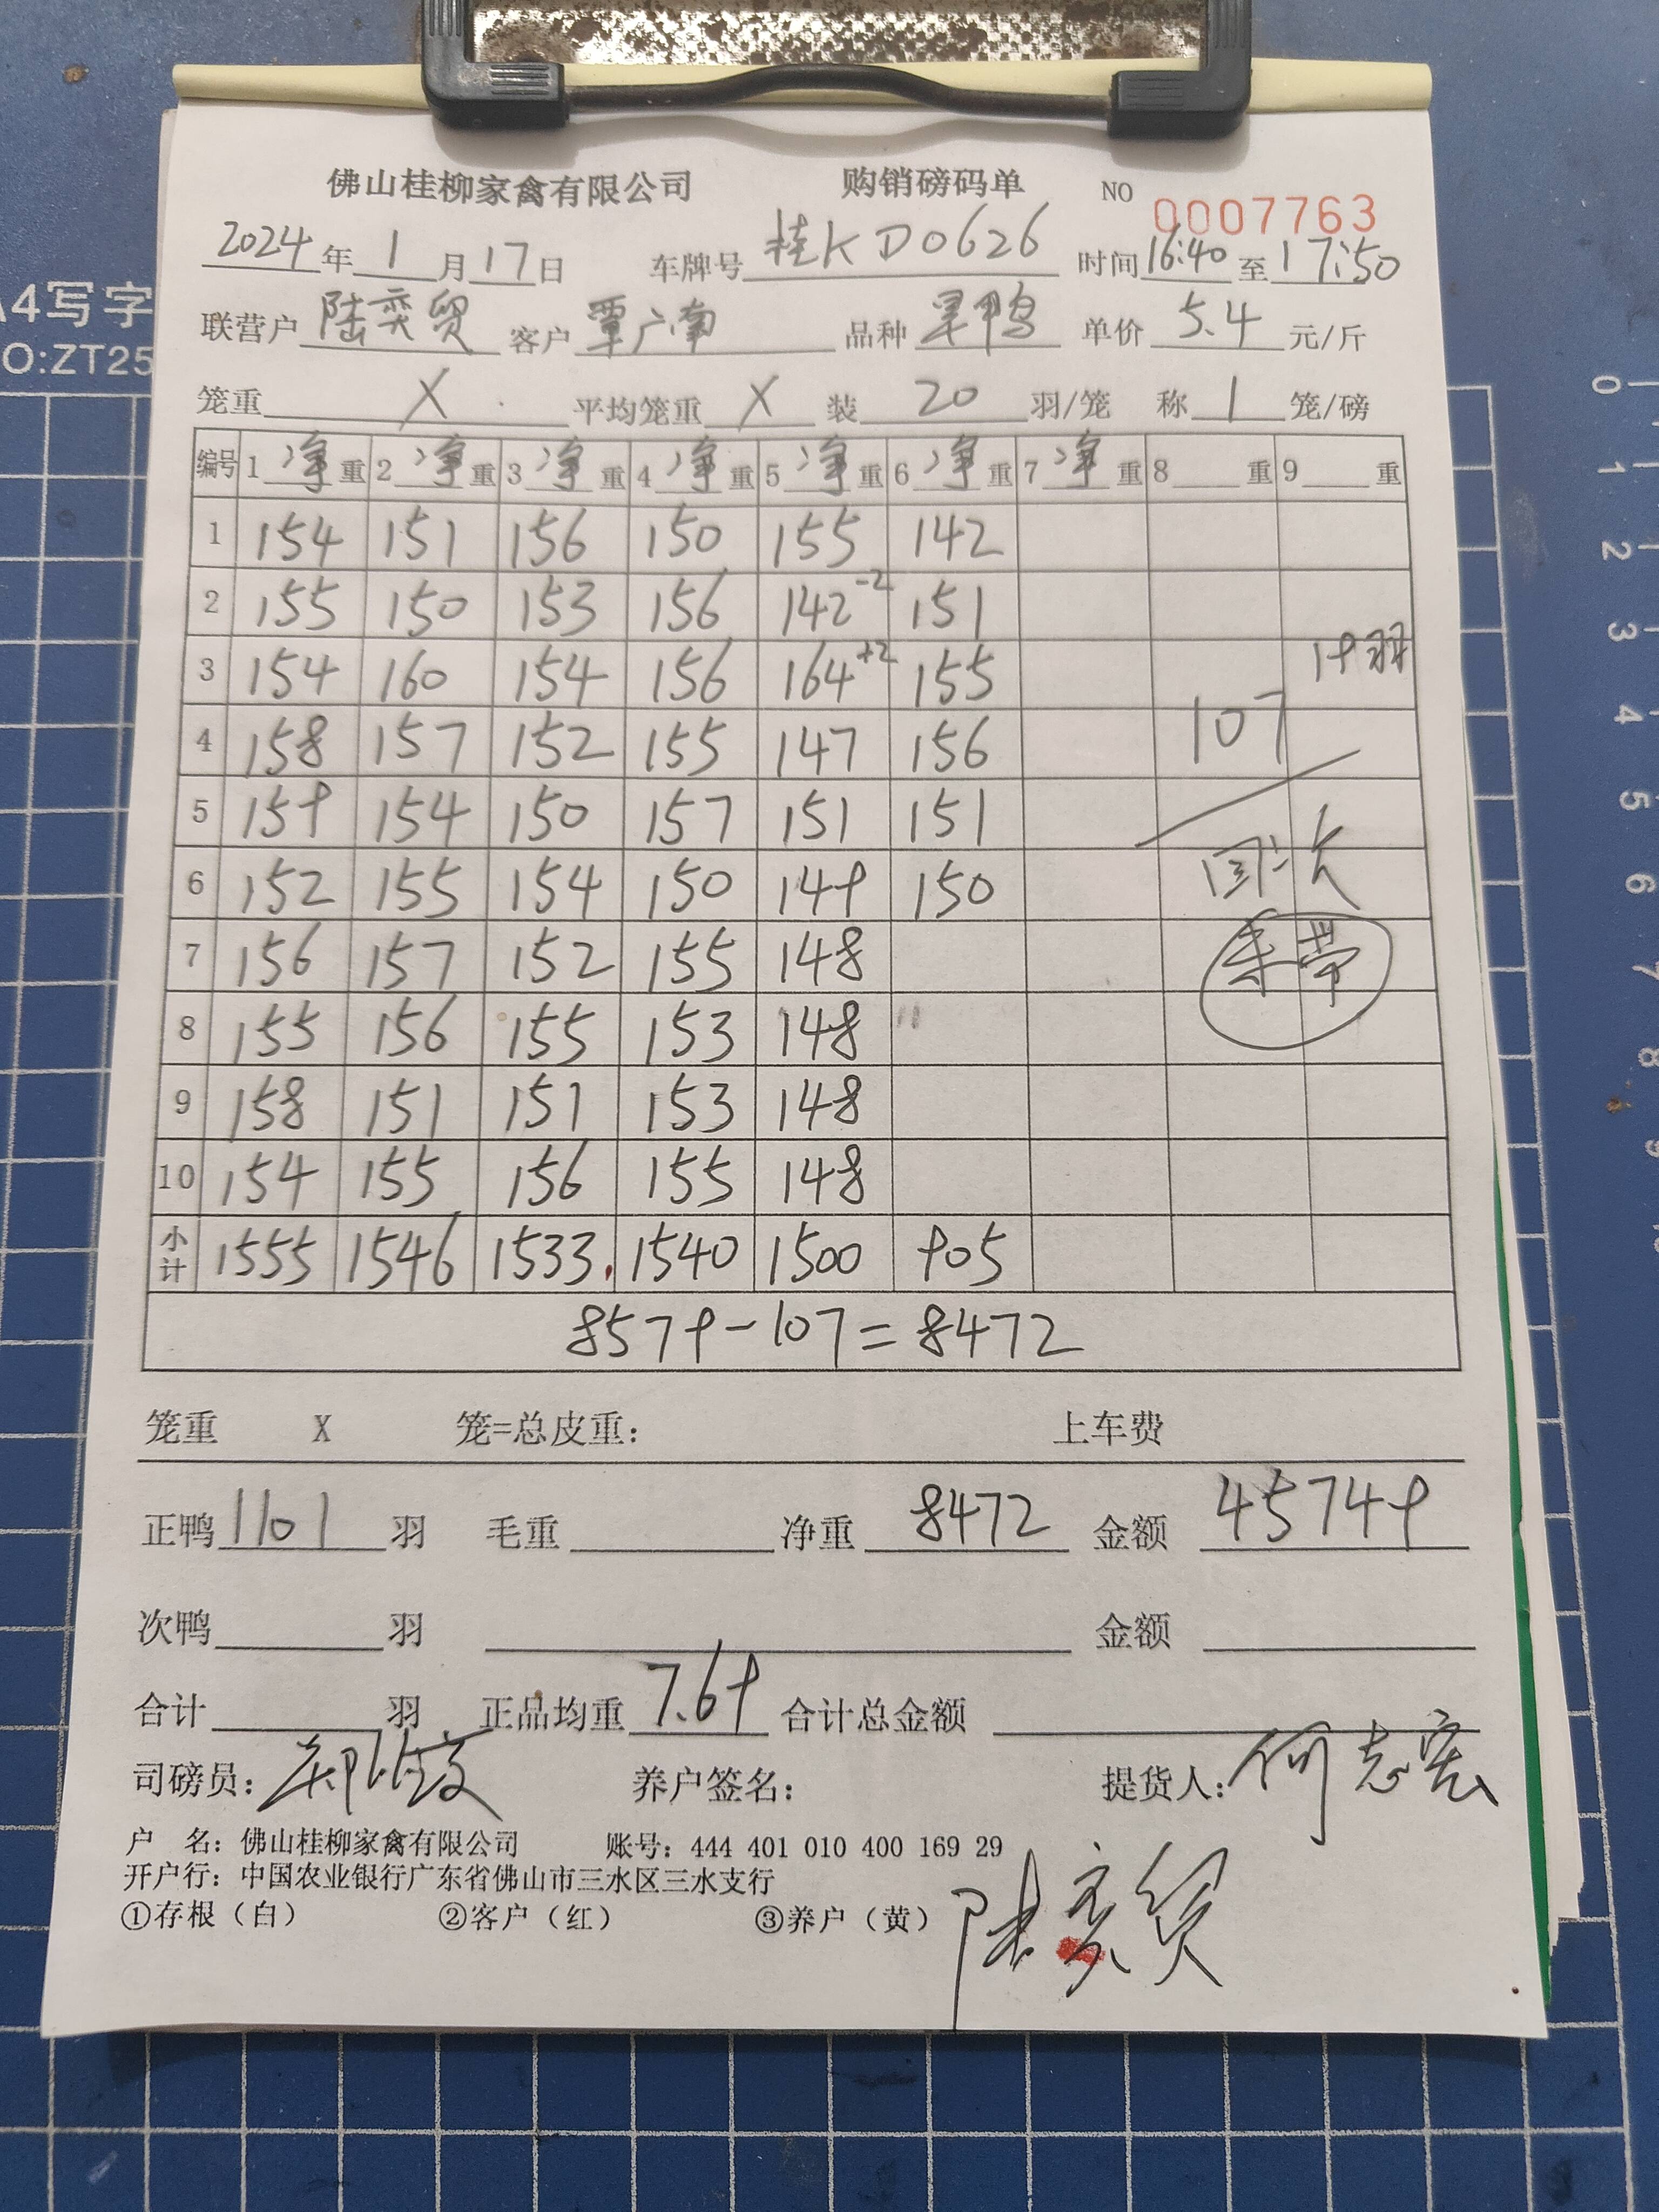 佛山桂柳家禽有限公司 购销磅码单 NO 0007763
2024年1月17日 车牌号 桂KD0626 时间16:40至17:50
联营户 陆奕贸 客户 覃广南 品种 旱鸭 单价 5.4 元/斤
笼重 X 平均笼重 X 装 20 羽/笼 称 1 笼/磅
编号 1 净重 2 净重 3 净重 4 净重 5 净重 6 净重 7 净重 8 重 9 重
1 154 151 156 150 155 142
2 155 150 153 156 142-2 151
3 154 160 154 156 164+2 155 19羽
4 158 157 152 155 147 156 107
5 159 154 150 157 151 151
6 152 155 154 150 149 150
7 156 157 152 155 148
8 155 156 155 153 148
9 158 151 151 153 148
10 154 155 156 155 148
小计 1555 1546 1533 1540 1500 905
8579-107=8472
笼重 X 笼=总皮重: 上车费
正鸭 1101 羽 毛重 净重 8472 金额 45749
次鸭 羽 金额
合计 羽 正品均重 7.69 合计总金额
司磅员: 养户签名: 提货人: 何志宏
户 名: 佛山桂柳家禽有限公司 账号: 444 401 010 400 169 29
开户行: 中国农业银行广东省佛山市三水区三水支行
①存根（白） ②客户（红） ③养户（黄） 陆奕贸
A4写字
O:ZT25
0
1
2
3
4
5
6
7
8
9